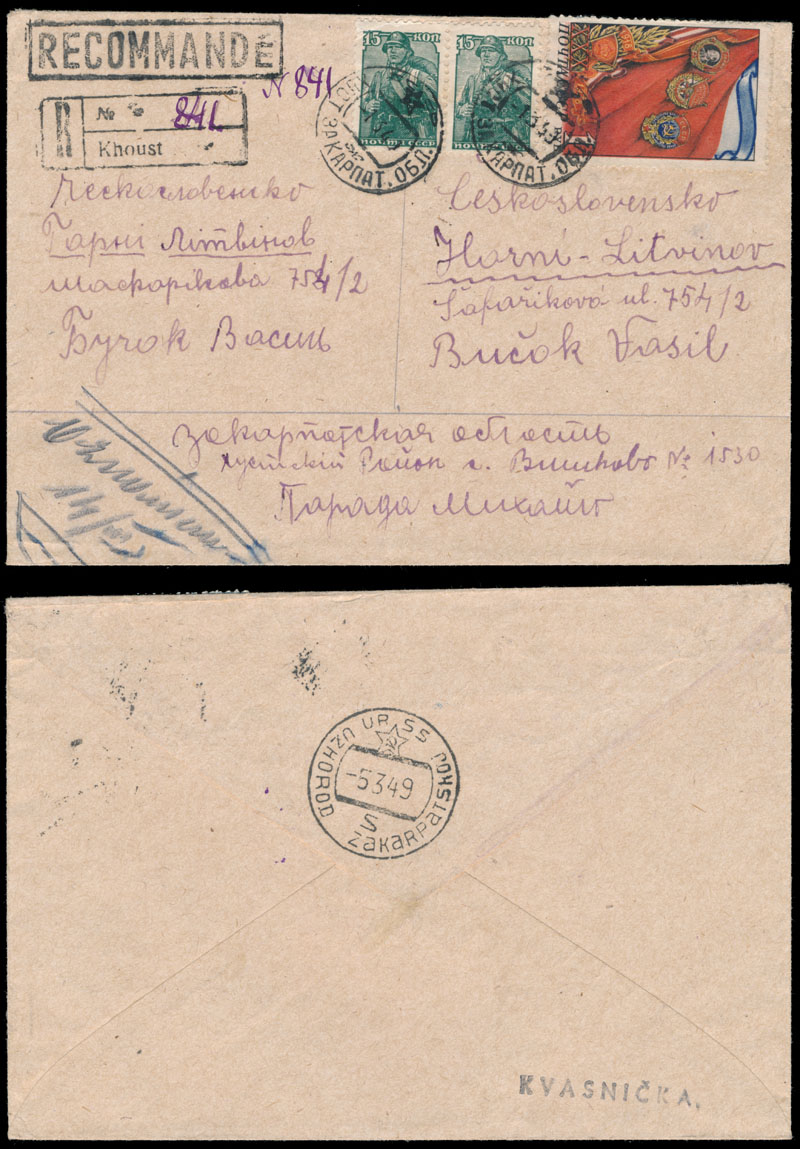 RECOMMANDÉ
N 841
R № 841
Khoust
15 КОП
15 КОП
ПОЧТА СССР
ЗАКАРПАТ. ОБЛ.
ЗАКАРПАТ. ОБЛ.
Ческословенско
Гарні Літвінов
754/2
Бучок Василь
Československo
Horní-Litvinov
Šafaříková ul. 754/2
Bučok Vasil
Закарпатская область
Хустский Район с. Вишково № 1530
Парада Михайло
UŽHOROD UR SS POKSKOJ
-5.3.49
S
ZAKARPATSKOJ
KVASNIČKA.